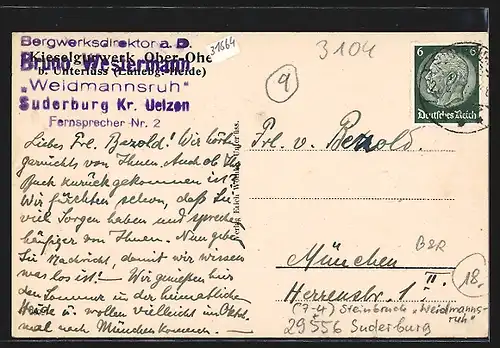 Bergwerksdirektor a.D.
Kieselgurwerk Ober-Ohe
Bruno Westermann
b. Unterlüss (Lünebg. Heide)
„Weidmannsruh"
Suderburg Kr. Uelzen
Fernsprecher Nr. 2
31664
3104
9
6 6
Deutsches Reich
Liebes Frl. Bezold! Wir hörten
nichts von Ihnen. Auch ob Ihr
Buch zurückgekommen ist.
Wir fürchten schon, daß Sie
viel Sorgen haben und sprechen
häufiger von Ihnen. Nun geben
Sie Nachricht, damit wir wissen
was los ist! – Wir genießen hier
den Sommer in der heimatlichen
Heide u. wollen vielleicht im Okt.
mal nach München kommen. –
Verlag Erich Unterlüss.
Frl. v. Bezold.
München
B&R
Herrenstr. 1 II.
18.
(7-4) Steinbruch „Weidmanns-
ruh"
29556 Suderburg